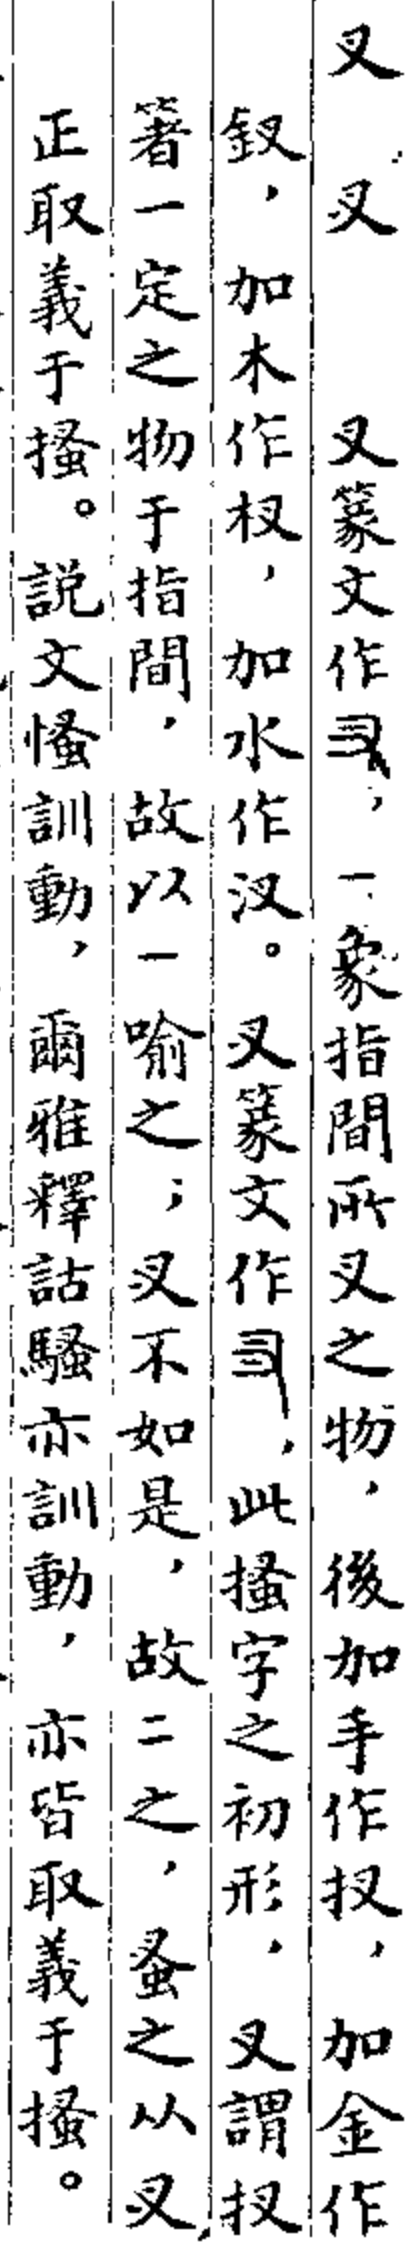 叉　㕚　叉篆文作，一象指間所叉之物，後加手作扠，加金作
釵，加木作杈，加水作汊。㕚篆文作，此搔字之初形，叉謂扠
箸一定之物于指間，故以一喻之；㕚不如是，故二之，蚤之从㕚，
正取義于搔。説文慅訓動，爾雅釋詁騷亦訓動，亦皆取義于搔。